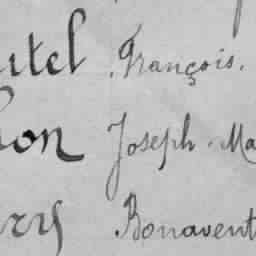 utel François.
on Joseph Ma
rry Bonavent